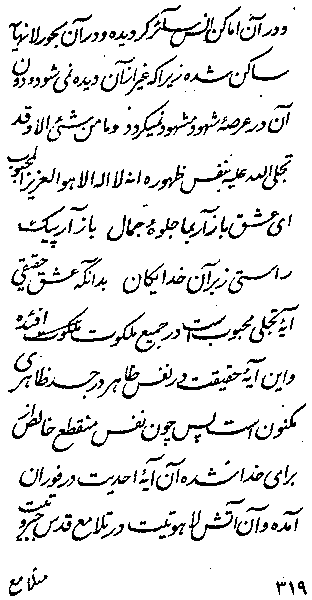 و در آن اماکن انس سائر گردیده و در آن بحور لا نهایه
ساکن شده زیرا که غیر از آن دیده نمی شود و دون
آن در عرصهٔ شهود مشهود نمیگردد و ما من شیئی الا و قد
تجلی الله علیه بنفس ظهوره انه لا اله الا هو العزیز المحبوب
ای عشق باز آ بما جلوهٔ جمال باز آر پیک
راستی زبر آن خدایگان بدانکه عشق حقیقی
آیهٔ تجلی محبوب است در جمیع ملکوت ملکوت افئده
و این آیهٔ حقیقت در نفس ظاهر در جسد ظاهری
مکنون است پس چون نفس منقطع خالصاً
برای خدا شده آن آیهٔ احدیت در فوران
آمده و آن آتش لاهوتیت در تلامع قدس جبروتیت
متلامع
۳۱۹